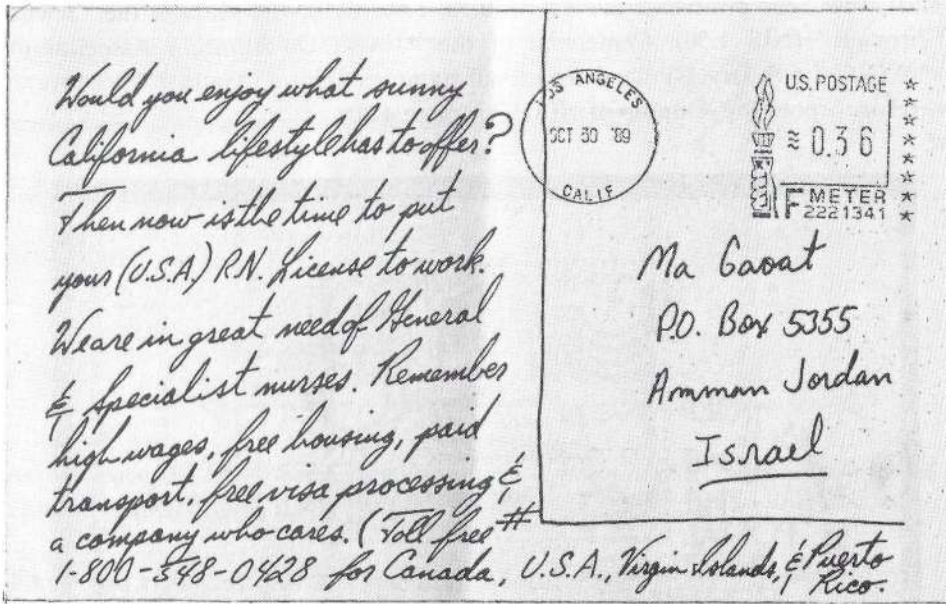 Would you enjoy what sunny
California lifestyle has to offer?
Then now is the time to put
your (U.S.A.) R.N. License to work.
We are in great need of General
& Specialist nurses. Remember
high wages, free housing, paid
transport, free visa processing &
a company who cares. (Toll free #
1-800-548-0428 for Canada, U.S.A., Virgin Islands, & Puerto
Rico.
LOS ANGELES
OCT 30 '89
CALIF
U.S. POSTAGE
≈ 0.36
F METER
2221341
Ma Gaoat
P.O. Box 5355
Amman Jordan
Israel